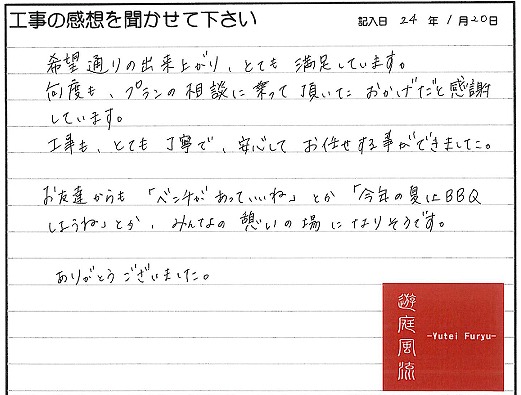 工事の感想を聞かせて下さい
記入日 24 年 1 月 20 日
希望通りの出来上がり、とても 満足しています。
何度も、プランの相談に乗って頂いた おかげだと感謝
しています。
工事も、とても 丁寧で、安心して お任せする事ができました。
お友達からも 「ベンチが あっていいね」 とか 「今年の夏はBBQ
しようね」とか、みんなの 憩いの場に なりそうです。
ありがとうございました。
遊庭風流
-Yutei Furyu-